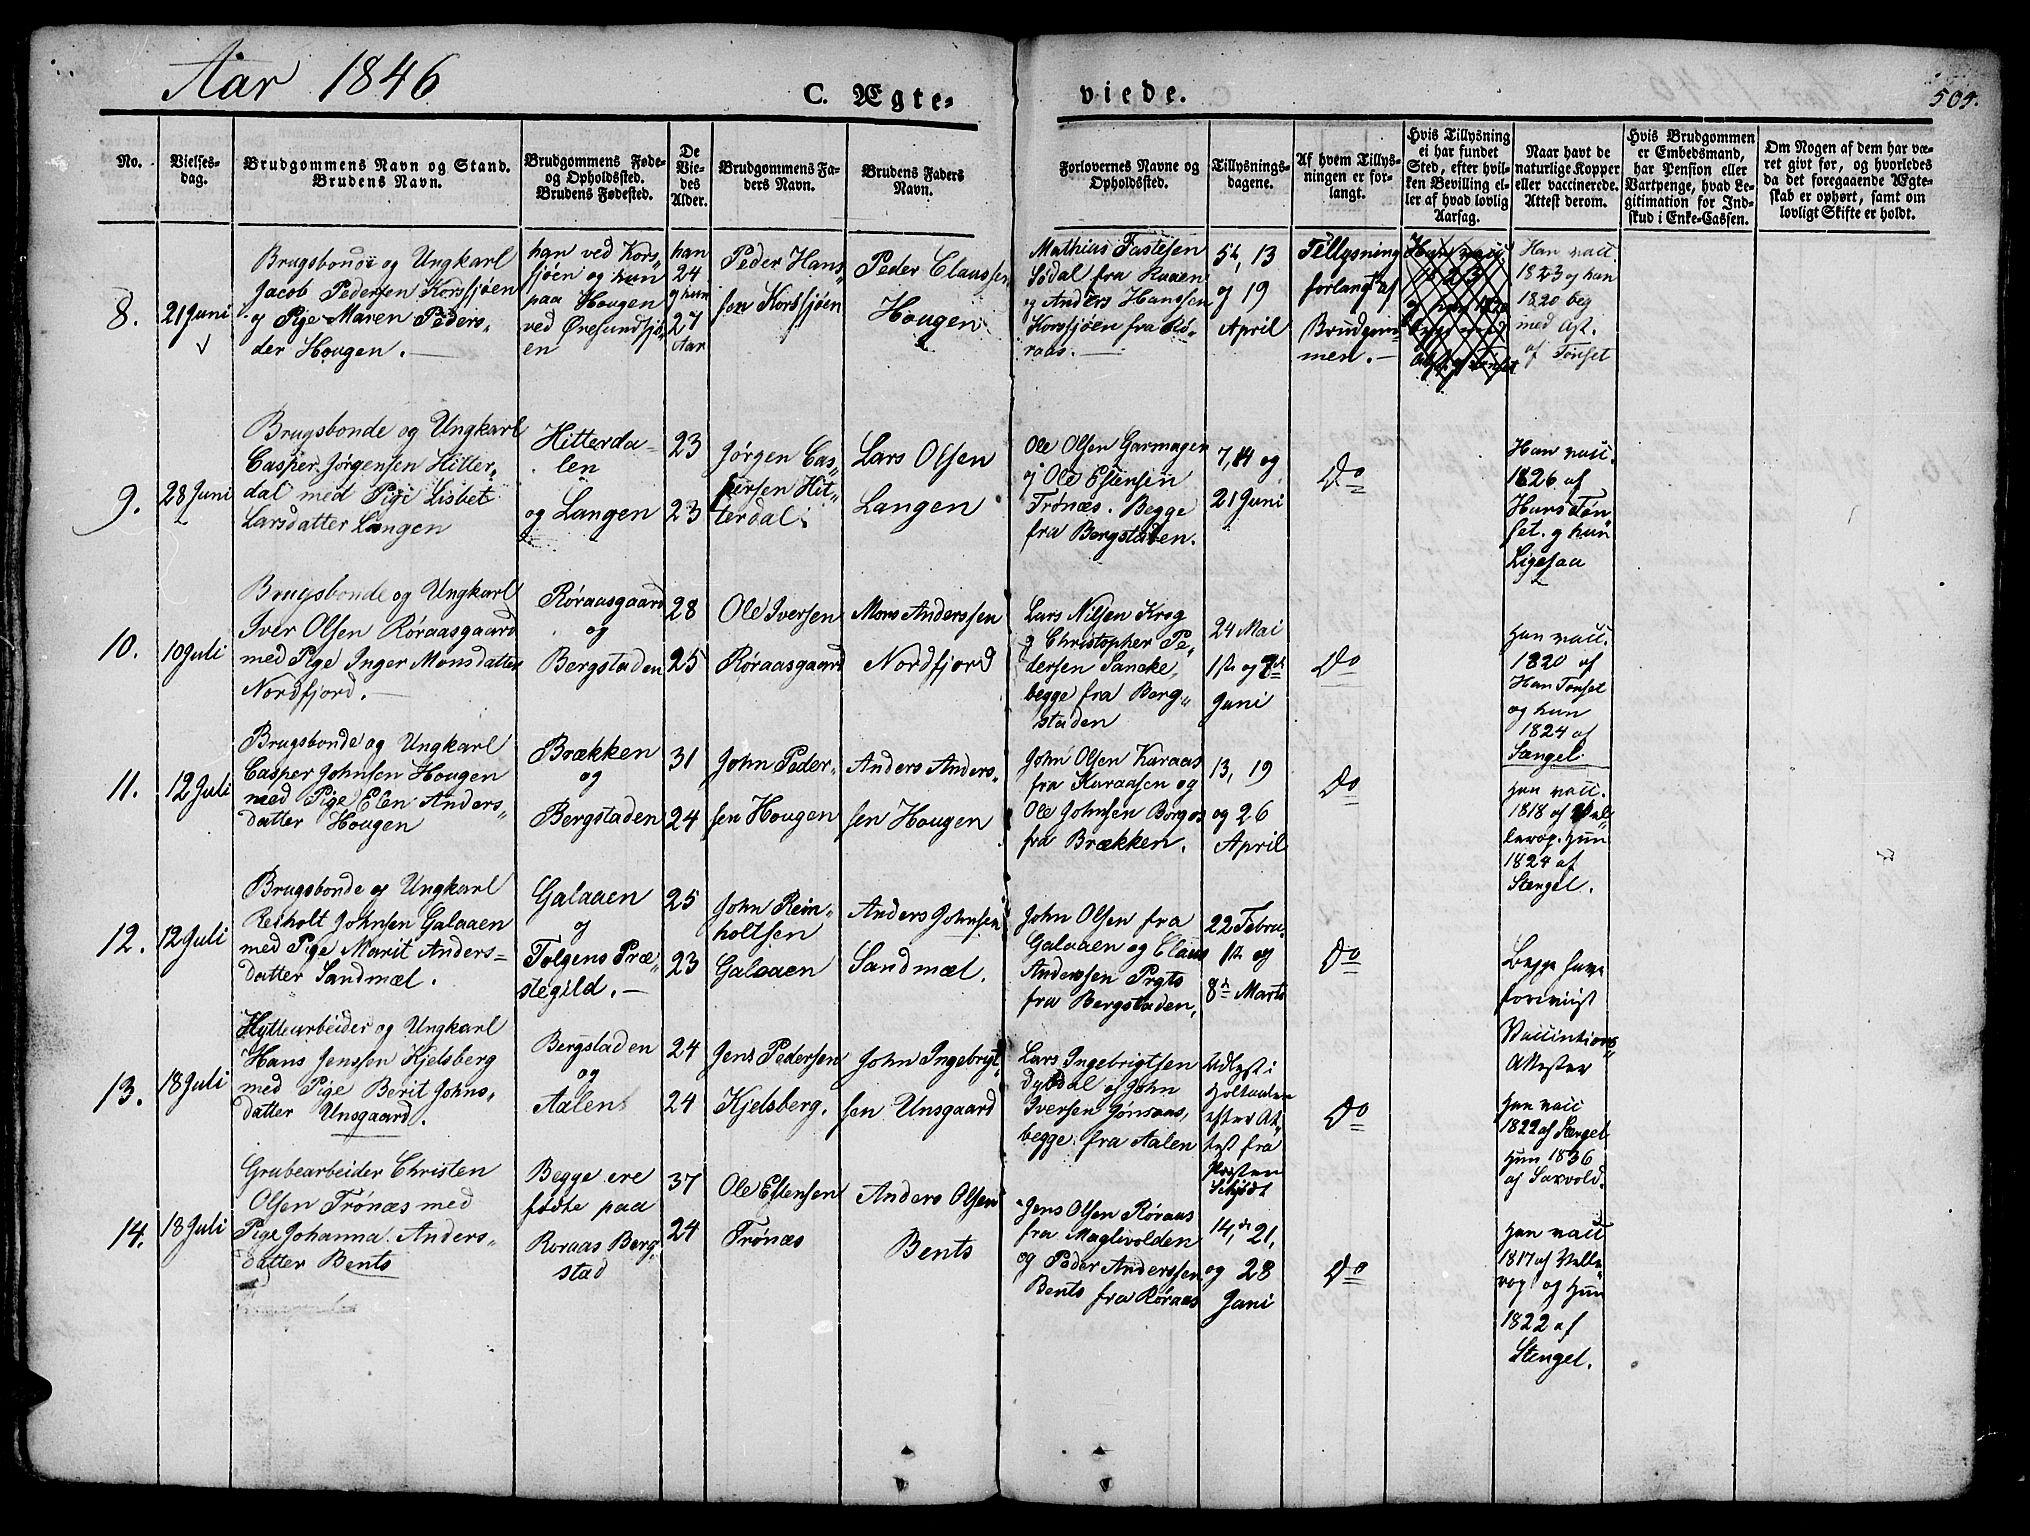 Aar 1846
C. Ægte-
viede.
509.
No.
Vielses-
dag.
Brudgommens Navn og Stand.
Brudens Navn.
Brudgommens Føde-
og Opholdssted.
Brudens Fødested.
De
Vie-
des
Alder.
Brudgommens Fa-
ders Navn.
Brudens Faders
Navn.
Forlovernes Navne og
Opholdssted.
Tillysnings-
dagene.
Af hvem Tillys-
ningen er for-
langt.
Hvis Tillysning
ei har fundet
Sted, efter hvil-
ken Bevilling el-
ler af hvad lovlig
Aarsag.
Naar havt de
naturlige Kopper
eller vaccinerede.
Attest derom.
Hvis Brudgommen
er Embedsmand,
har Pension eller
Vartpenge, hvad Le-
gitimation for Ind-
skud i Enke-Cassen.
Om Nogen af dem har væ-
ret givt før, og hvorledes
da det foregaaende Ægte-
skab er ophørt, samt om
lovligt Skifte er holdt.
8.
21 Juni
Brugsbonde og Ungkarl
Jacob Pedersen Korssjøen
og Pige Maren Peders-
der Hougen.
han ved Kors-
sjøen og hun
paa Hougen
ved Øresundsjø-
en
han
24
og hun
27
Aar
Peder Hans-
sen Korssjøen
Peder Claussen
Hougen
Mathias Fastesen
Sødal fra Raaen
og Anders Hanssen
Korssjøen fra Rø-
raas.
5te, 13
og 19
April
Tillysning
forlangt af
Brudgom-
men.
Han vacc.
1823 og hun
1820 beg
med Att.
af Tønset
9.
28 Juni
Brugsbonde og Ungkarl
Casper Jørgensen Hitter-
dal med Pige Lisbet
Larsdatter Langen
Hitterda-
len
og Langen
23
23
Jørgen Cas-
persen Hit-
terdal.
Lars Olsen
Langen
Ole Olsen Garmagen
og Ole Estensen
Trønæs. Begge
fra Bergstaden.
7, 14 og
21 Juni
Do
Han vacc.
1826 af
Hans Tøn-
set. og hun
Ligesaa
10.
10 Juli
Brugsbonde og Ungkarl
Iver Olsen Røraasgaard
med Pige Inger Monsdatter
Nordfjord.
Røraasgaard
og
Bergstaden
28
25
Ole Iversen
Røraasgaard
Mons Anderssen
Nordfjord
Lars Nilsen Krog
og Christopher Pe-
dersen Sancke,
begge fra Berg-
staden
24 Mai
1ste og 7de
Juni
Do
Han vacc.
1820 af
Han Tønset
og hun
1824 af
Stengel
11.
12 Juli
Brugsbonde og Ungkarl
Casper Johnsen Hougen
med Pige Elen Anders-
datter Hougen
Brækken
og
Bergstaden
31
24
John Peder-
sen Hougen
Anders Anders-
sen Hougen
John Olsen Kuraas
fra Kuraasen og
Ole Johnsen Borgos
fra Brækken.
13, 19
og 26
April
Do
Han vacc.
1818 af Vel-
levog. Hun
1824 af
Stengel.
12.
12 Juli
Brugsbonde og Ungkarl
Reiholt Johnsen Galaaen
med Pige Marit Anders-
datter Sandmæl.
Galaaen
og
Tolgens Præ-
stegild.
25
23
John Rein-
holtsen
Galaaen
Anders Johnsen
Sandmæl.
John Olsen fra
Galaaen og Claus
Anderssen Prgts
fra Bergstaden,
22 Febru.
1ste og
8de Marts
Do
Begge have
foreviist
Vaccinations-
Attester
13.
18 Juli
Hyttearbeider og Ungkarl
Hans Jenssen Kjelsberg
med Pige Berit Johns-
datter Unsgaard.
Bergstaden
og
Aalen
24
24
Jens Pedersen
Kjelsberg.
John Ingebrigt-
sen Unsgaard
Lars Ingebrigtsen
Dysdal og John
Iversen Jønsaas,
begge fra Aalen
Udlyst i
Holtaalen
efter At-
test fra
Præsten
Schjødt
Do
Han vacc
1822 af Stengel
Hun 1836
af Saxvold.
14.
18 Juli
Grubearbeider Christen
Olsen Trønæs med
Pige Johanna Anders-
datter Bents
Begge ere
fødte paa
Røraas Berg-
stad
37
24
Ole Estensen
Trønæs
Anders Olsen
Bents
Jens Olsen Røraas
fra Moglivolden
og Peder Anderssen
Bents fra Røraas
14de, 21,
og 28
Juni
Do
Han vacc
1817 af Velle-
vog og Hun
1822 af
Stengel.